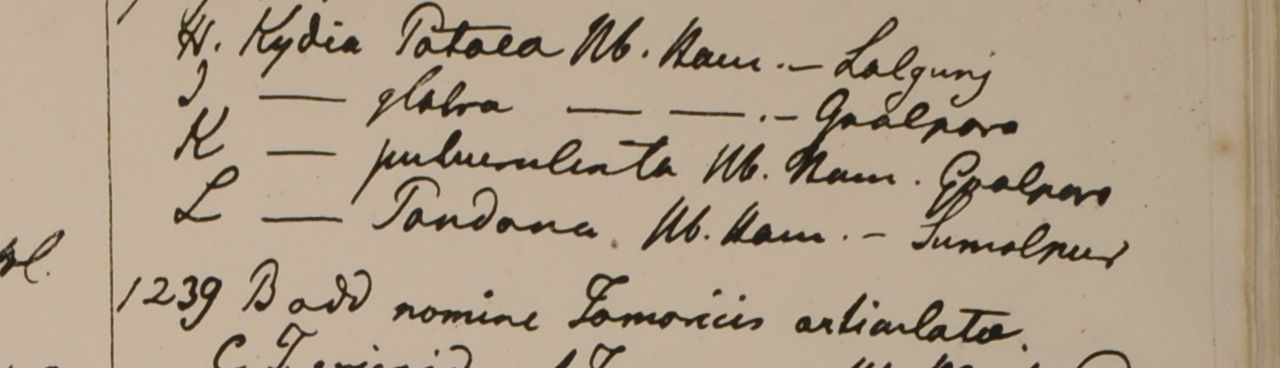 H. Kydia Pataea Hb. Ham. — Lalgunj
J — glabra — — . — Goalpara
K — pulverulenta Hb. Ham. Goalpara
L — Tandana. Hb. Ham. — Sumalpur
1239 B add nomine Tamaricis articulatae.